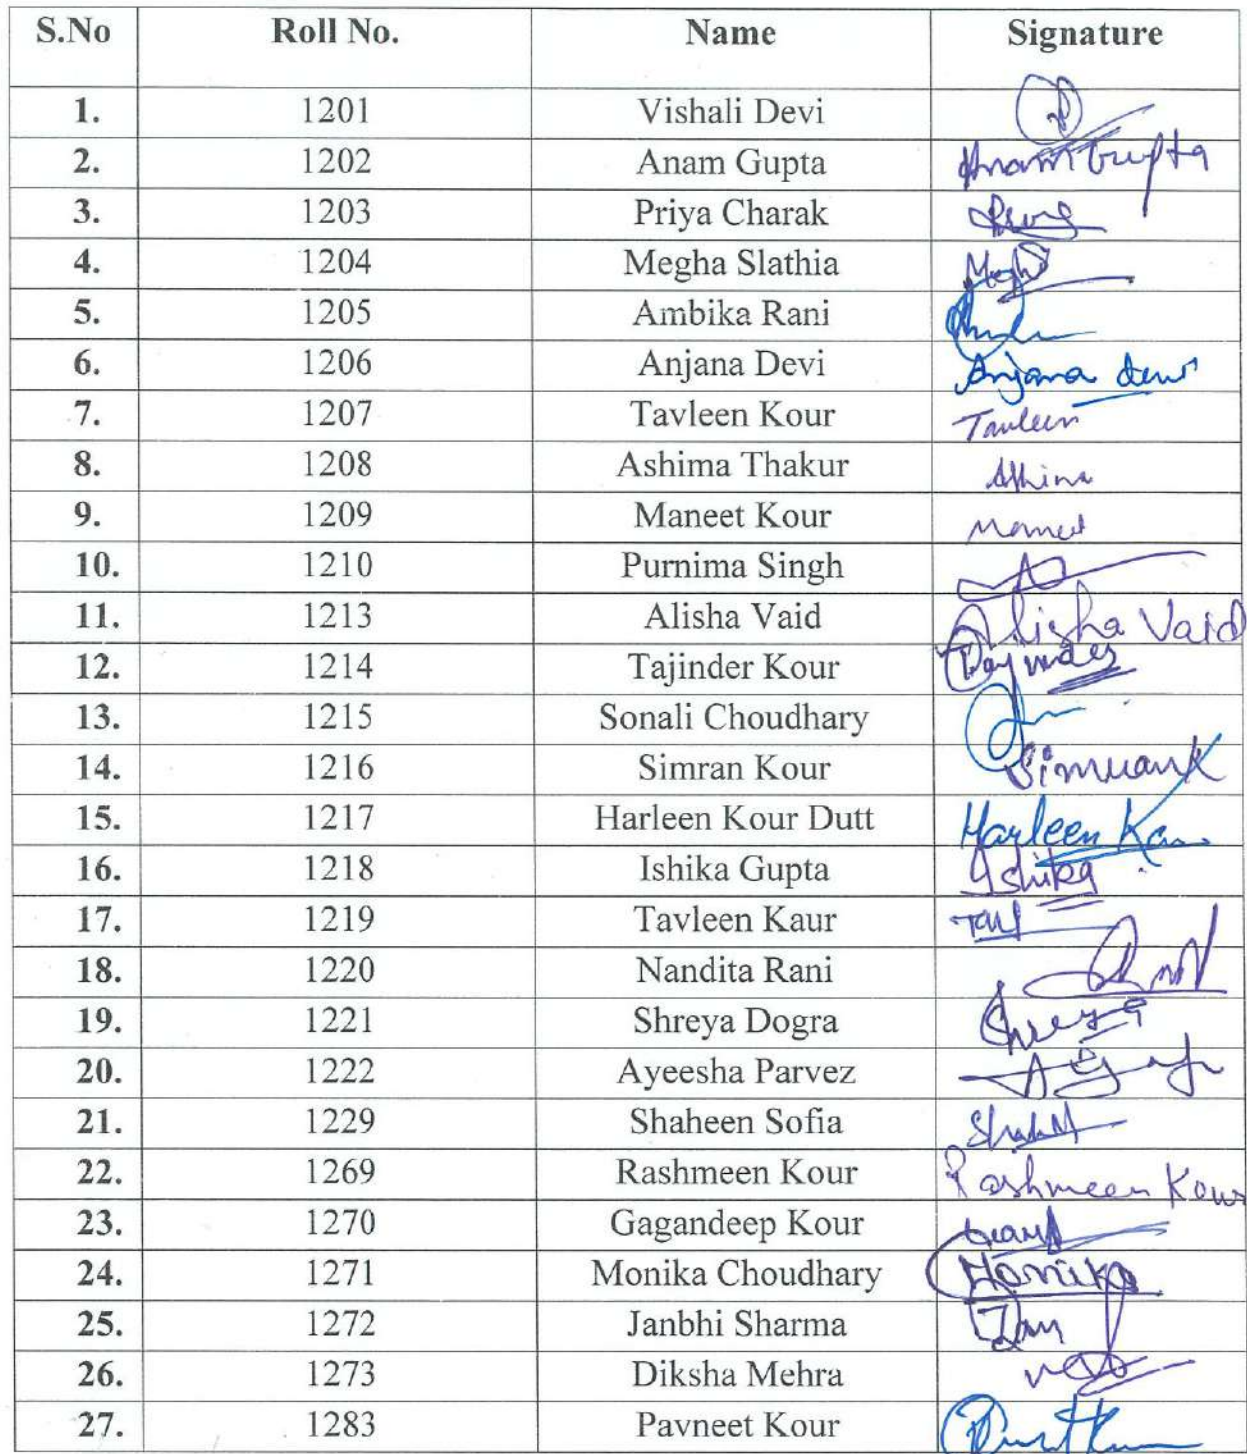 S.No Roll No. Name Signature
1. 1201 Vishali Devi
2. 1202 Anam Gupta Anam Gupta
3. 1203 Priya Charak
4. 1204 Megha Slathia Megha
5. 1205 Ambika Rani
6. 1206 Anjana Devi Anjana devi
7. 1207 Tavleen Kour Tavleen
8. 1208 Ashima Thakur Ashima
9. 1209 Maneet Kour Maneet
10. 1210 Purnima Singh
11. 1213 Alisha Vaid Alisha Vaid
12. 1214 Tajinder Kour
13. 1215 Sonali Choudhary
14. 1216 Simran Kour SimranK
15. 1217 Harleen Kour Dutt Harleen
16. 1218 Ishika Gupta Ishika
17. 1219 Tavleen Kaur
18. 1220 Nandita Rani
19. 1221 Shreya Dogra Shreya
20. 1222 Ayeesha Parvez
21. 1229 Shaheen Sofia
22. 1269 Rashmeen Kour Rashmeen Kour
23. 1270 Gagandeep Kour
24. 1271 Monika Choudhary Monika
25. 1272 Janbhi Sharma Jan
26. 1273 Diksha Mehra
27. 1283 Pavneet Kour